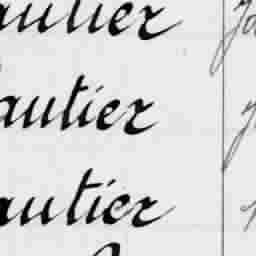 autier
autier
autier